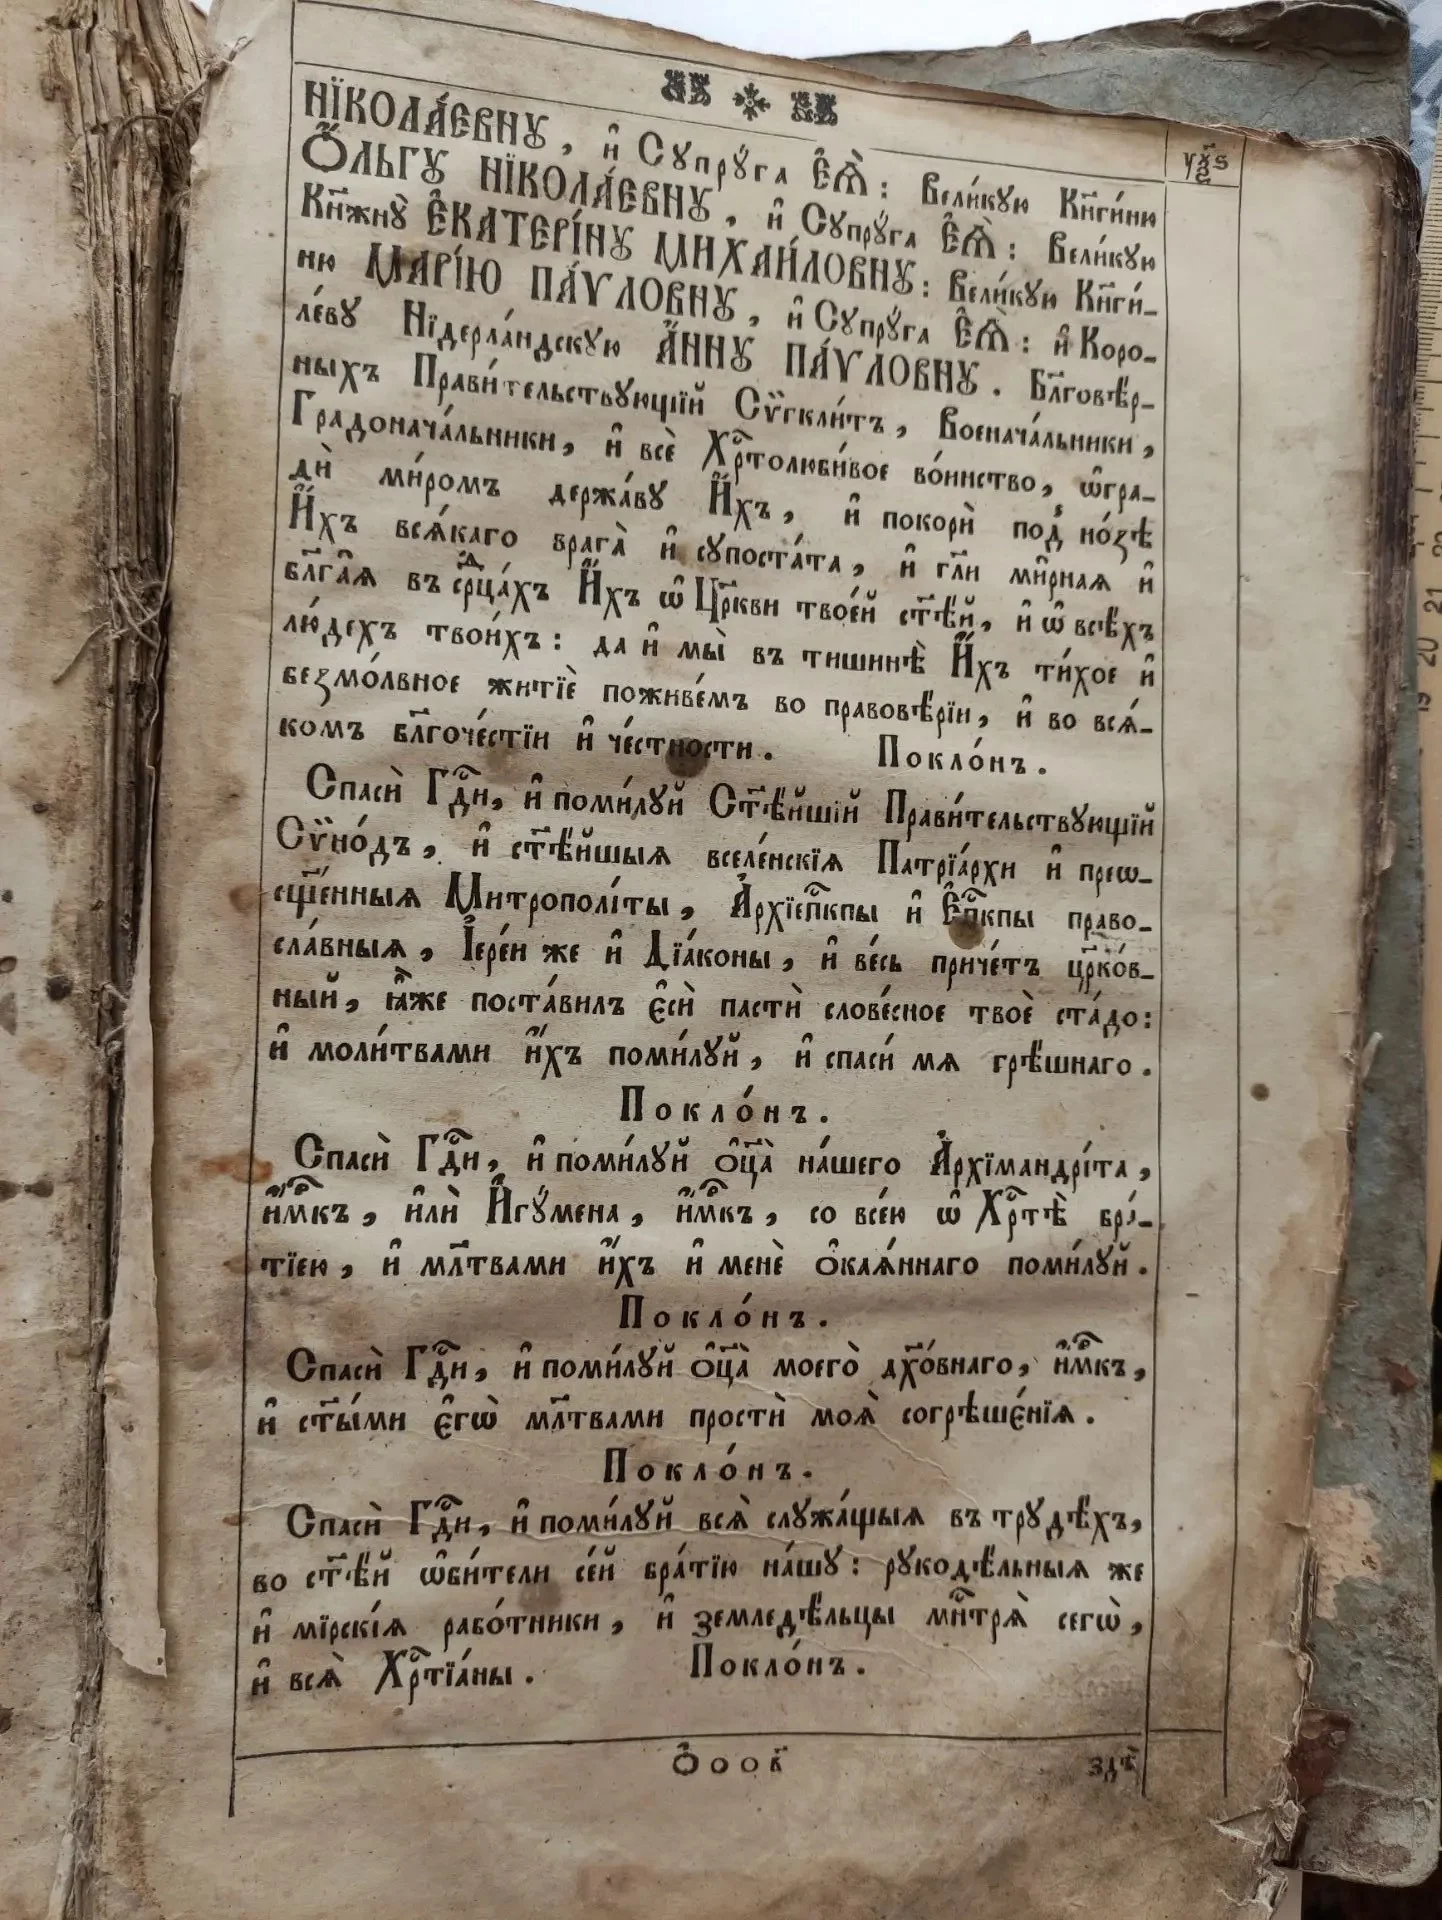 НЇКОЛА́ЕВНꙊ, и҆ Сꙋпрꙋ́га Е҆Ѧ̀: Вели́кꙋю Кн҃ги́ню
Ѻ҆́ЛЬГꙊ НЇКОЛА́ЕВНꙊ, и҆ Сꙋпрꙋ́га Е҆Ѧ̀: Вели́кꙋю
Кн҃жнꙋ̀ Е҆КАТЕРІ́НꙊ МИХАИ́ЛОВНꙊ: Вели́кꙋю Кн҃ги́-
ню МАРІ́Ю ПА́ѴЛОВНꙊ, и҆ Сꙋпрꙋ́га Е҆Ѧ̀: и҆ Коро-
ле́вꙋ Нїдерла́ндскꙋю А҆́ННꙊ ПА́ѴЛОВНꙊ. Бл҃говѣ́р-
ныхъ Прави́тельствꙋющїй Сѷгкли́тъ, Военача́льники,
Градонача́льники, и҆ всѐ Хрⷭ҇толюби́вое во́инство, ѡ҆гра-
дѝ ми́ромъ держа́вꙋ И҆́хъ, и҆ покорѝ под̾ но́зѣ
И҆́хъ всѧ́каго врага̀ и҆ сꙋпоста́та, и҆ гл҃и ми̑рнаѧ и҆
бл҃га̑ѧ въ срⷣца́хъ И҆́хъ ѡ҆ Цр҃кви твое́й ст҃ѣ́й, и҆ ѡ҆ всѣ́хъ
лю́дехъ твои́хъ: да и҆ мы̀ въ тишинѣ̀ И҆́хъ ти́хое и҆
безмо́лвное житїѐ поживе́мъ во правовѣ́рїи, и҆ во всѧ́-
комъ бл҃гоче́стїи и҆ че́стности. Покло́нъ.
Спасѝ Гдⷭ҇и, и҆ поми́лꙋй Ст҃ѣ́йшїй Прави́тельствꙋющїй
Сѷно́дъ, и҆ ст҃ѣ́йшыѧ вселе́нскїѧ Патрїа́рхи и҆ преѡ-
сщ҃е́нныѧ Митрополі́ты, А҆рхїепⷭ҇кпы и҆ Е҆пⷭ҇кпы право-
сла́вныѧ, І҆ере́и же и҆ Дїа́коны, и҆ ве́сь приче́тъ цр҃ко́в-
ный, ꙗ҆̀же поста́вилъ е҆сѝ пастѝ слове́сное твоѐ ста́до:
и҆ моли́твами и҆́хъ поми́лꙋй, и҆ спаси́ мѧ грѣ́шнаго.
Покло́нъ.
Спасѝ Гдⷭ҇и, и҆ поми́лꙋй ѻ҆ц҃а̀ на́шего А҆рхїмандрі́та,
и҆́мⷬ҇къ, и҆лѝ И҆гꙋ́мена, и҆́мⷬ҇къ, со все́ю ѡ҆ Хрⷭ҇тѣ̀ бра́-
тїею, и҆ мл҃твами и҆́хъ и҆ менѐ ѻ҆каѧ́ннаго поми́лꙋй.
Покло́нъ.
Спасѝ Гдⷭ҇и, и҆ поми́лꙋй ѻ҆ц҃а̀ моего̀ дꙋхо́внаго, и҆́мⷬ҇къ,
и҆ ст҃ы́ми е҆гѡ̀ мл҃твами простѝ моѧ̑ согрѣшє́нїѧ.
Покло́нъ.
Спасѝ Гдⷭ҇и, и҆ поми́лꙋй всѧ̑ слꙋжа́щыѧ въ трꙋдѣ́хъ,
во ст҃ѣ́й ѡ҆би́тели се́й бра́тїю на́шꙋ: рꙋкодѣ́льныѧ же
и҆ мїрскі́ѧ рабо́тники, и҆ земледѣ́льцы мн҃трѧ̀ сегѡ̀,
и҆ всѧ̑ Хрⷭ҇тїа́ны. Покло́нъ.
здѣ̀